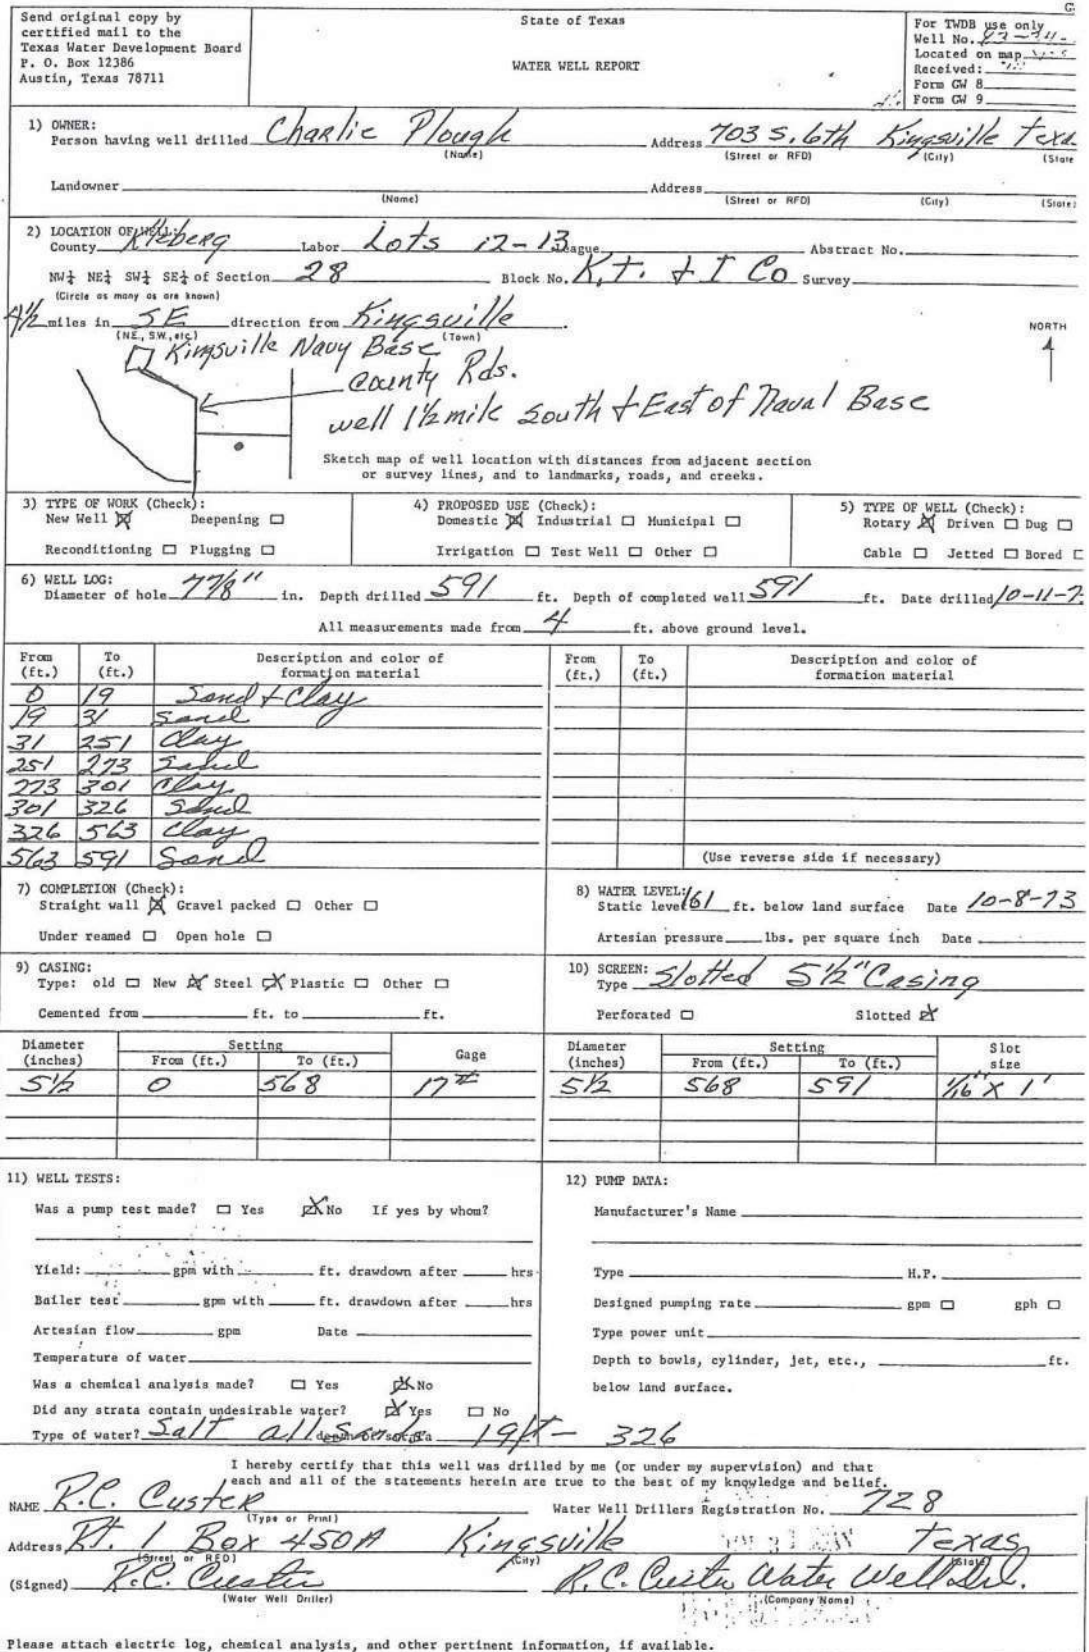 Send original copy by
certified mail to the
Texas Water Development Board
P. O. Box 12386
Austin, Texas 78711
State of Texas
WATER WELL REPORT
For TWDB use only
Well No.
Located on map
Received:
Form GW 8
Form GW 9
1) OWNER:
Person having well drilled Charlie Plough Address 703 S. 6th Kingsville Texa.
(Name) (Street or RFD) (City) (State
Landowner Address
(Name) (Street or RFD) (City) (State)
2) LOCATION OF WELL:
County Kleberg Labor Lots 12-13 League Abstract No.
NW¼ NE¼ SW¼ SE¼ of Section 28 Block No. K.T. + I Co Survey
(Circle as many as are known)
4½ miles in SE direction from Kingsville.
(NE., S.W., etc.) (Town)
NORTH
Kingsville Navy Base
County Rds.
well 1½ mile South + East of Naval Base
Sketch map of well location with distances from adjacent section
or survey lines, and to landmarks, roads, and creeks.
3) TYPE OF WORK (Check):
New Well ☒ Deepening ☐
Reconditioning ☐ Plugging ☐
4) PROPOSED USE (Check):
Domestic ☒ Industrial ☐ Municipal ☐
Irrigation ☐ Test Well ☐ Other ☐
5) TYPE OF WELL (Check):
Rotary ☒ Driven ☐ Dug ☐
Cable ☐ Jetted ☐ Bored ☐
6) WELL LOG:
Diameter of hole 7 7/8" in. Depth drilled 591 ft. Depth of completed well 591 ft. Date drilled 10-11-7
All measurements made from 4 ft. above ground level.
From (ft.) To (ft.) Description and color of formation material
From (ft.) To (ft.) Description and color of formation material
0 19 Sand + Clay
19 31 Sand
31 251 Clay
251 273 Sand
273 301 Clay
301 326 Sand
326 563 Clay
563 591 Sand
(Use reverse side if necessary)
7) COMPLETION (Check):
Straight wall ☒ Gravel packed ☐ Other ☐
Under reamed ☐ Open hole ☐
8) WATER LEVEL:
Static level 161 ft. below land surface Date 10-8-73
Artesian pressure lbs. per square inch Date
9) CASING:
Type: old ☐ New ☒ Steel ☒ Plastic ☐ Other ☐
Cemented from ft. to ft.
10) SCREEN:
Type Slotted 5½" Casing
Perforated ☐ Slotted ☒
Diameter (inches) Setting From (ft.) To (ft.) Gage
5½ 0 568 17#
Diameter (inches) Setting From (ft.) To (ft.) Slot size
5½ 568 591 1/16" X 1'
11) WELL TESTS:
Was a pump test made? ☐ Yes ☒ No If yes by whom?
Yield: gpm with ft. drawdown after hrs
Bailer test gpm with ft. drawdown after hrs
Artesian flow gpm Date
Temperature of water
Was a chemical analysis made? ☐ Yes ☒ No
Did any strata contain undesirable water? ☒ Yes ☐ No
Type of water? Salt all Sands 19ft - 326
12) PUMP DATA:
Manufacturer's Name
Type H.P.
Designed pumping rate gpm ☐ gph ☐
Type power unit
Depth to bowls, cylinder, jet, etc., ft.
below land surface.
I hereby certify that this well was drilled by me (or under my supervision) and that
each and all of the statements herein are true to the best of my knowledge and belief.
NAME R.C. Custer Water Well Drillers Registration No. 728
(Type or Print)
Address Rt. 1 Box 450A Kingsville Texas
(Street or RFD) (City) (State)
(Signed) R.C. Custer R.C. Custer Water Well Drl.
(Water Well Driller) (Company Name)
Please attach electric log, chemical analysis, and other pertinent information, if available.